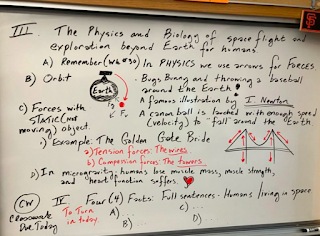 III. The Physics and Biology of space flight and
exploration beyond Earth for humans
A) Remember (wk of 30) In PHYSICS we use arrows for FORCES
B) Orbit
Earth
Fg
· Bugs Bunny and throwing a baseball
around the Earth!
A famous illustration by I. Newton
A canon ball is lauched with enough speed
(velocity) to "fall" around the Earth
C) Forces with
STATIC (not
moving) object.
1) Example: The Golden Gate Bride
a) Tension forces: The wires
b) Compession forces: The towers
D) In microgravity: humans lose muscle mass, muscle strength,
and heart function suffers.
CW
Classwork
Due Today
IV
To Turn
in today
Four (4) Facts: Full sentences - Humans living in space
A)
B)
D)